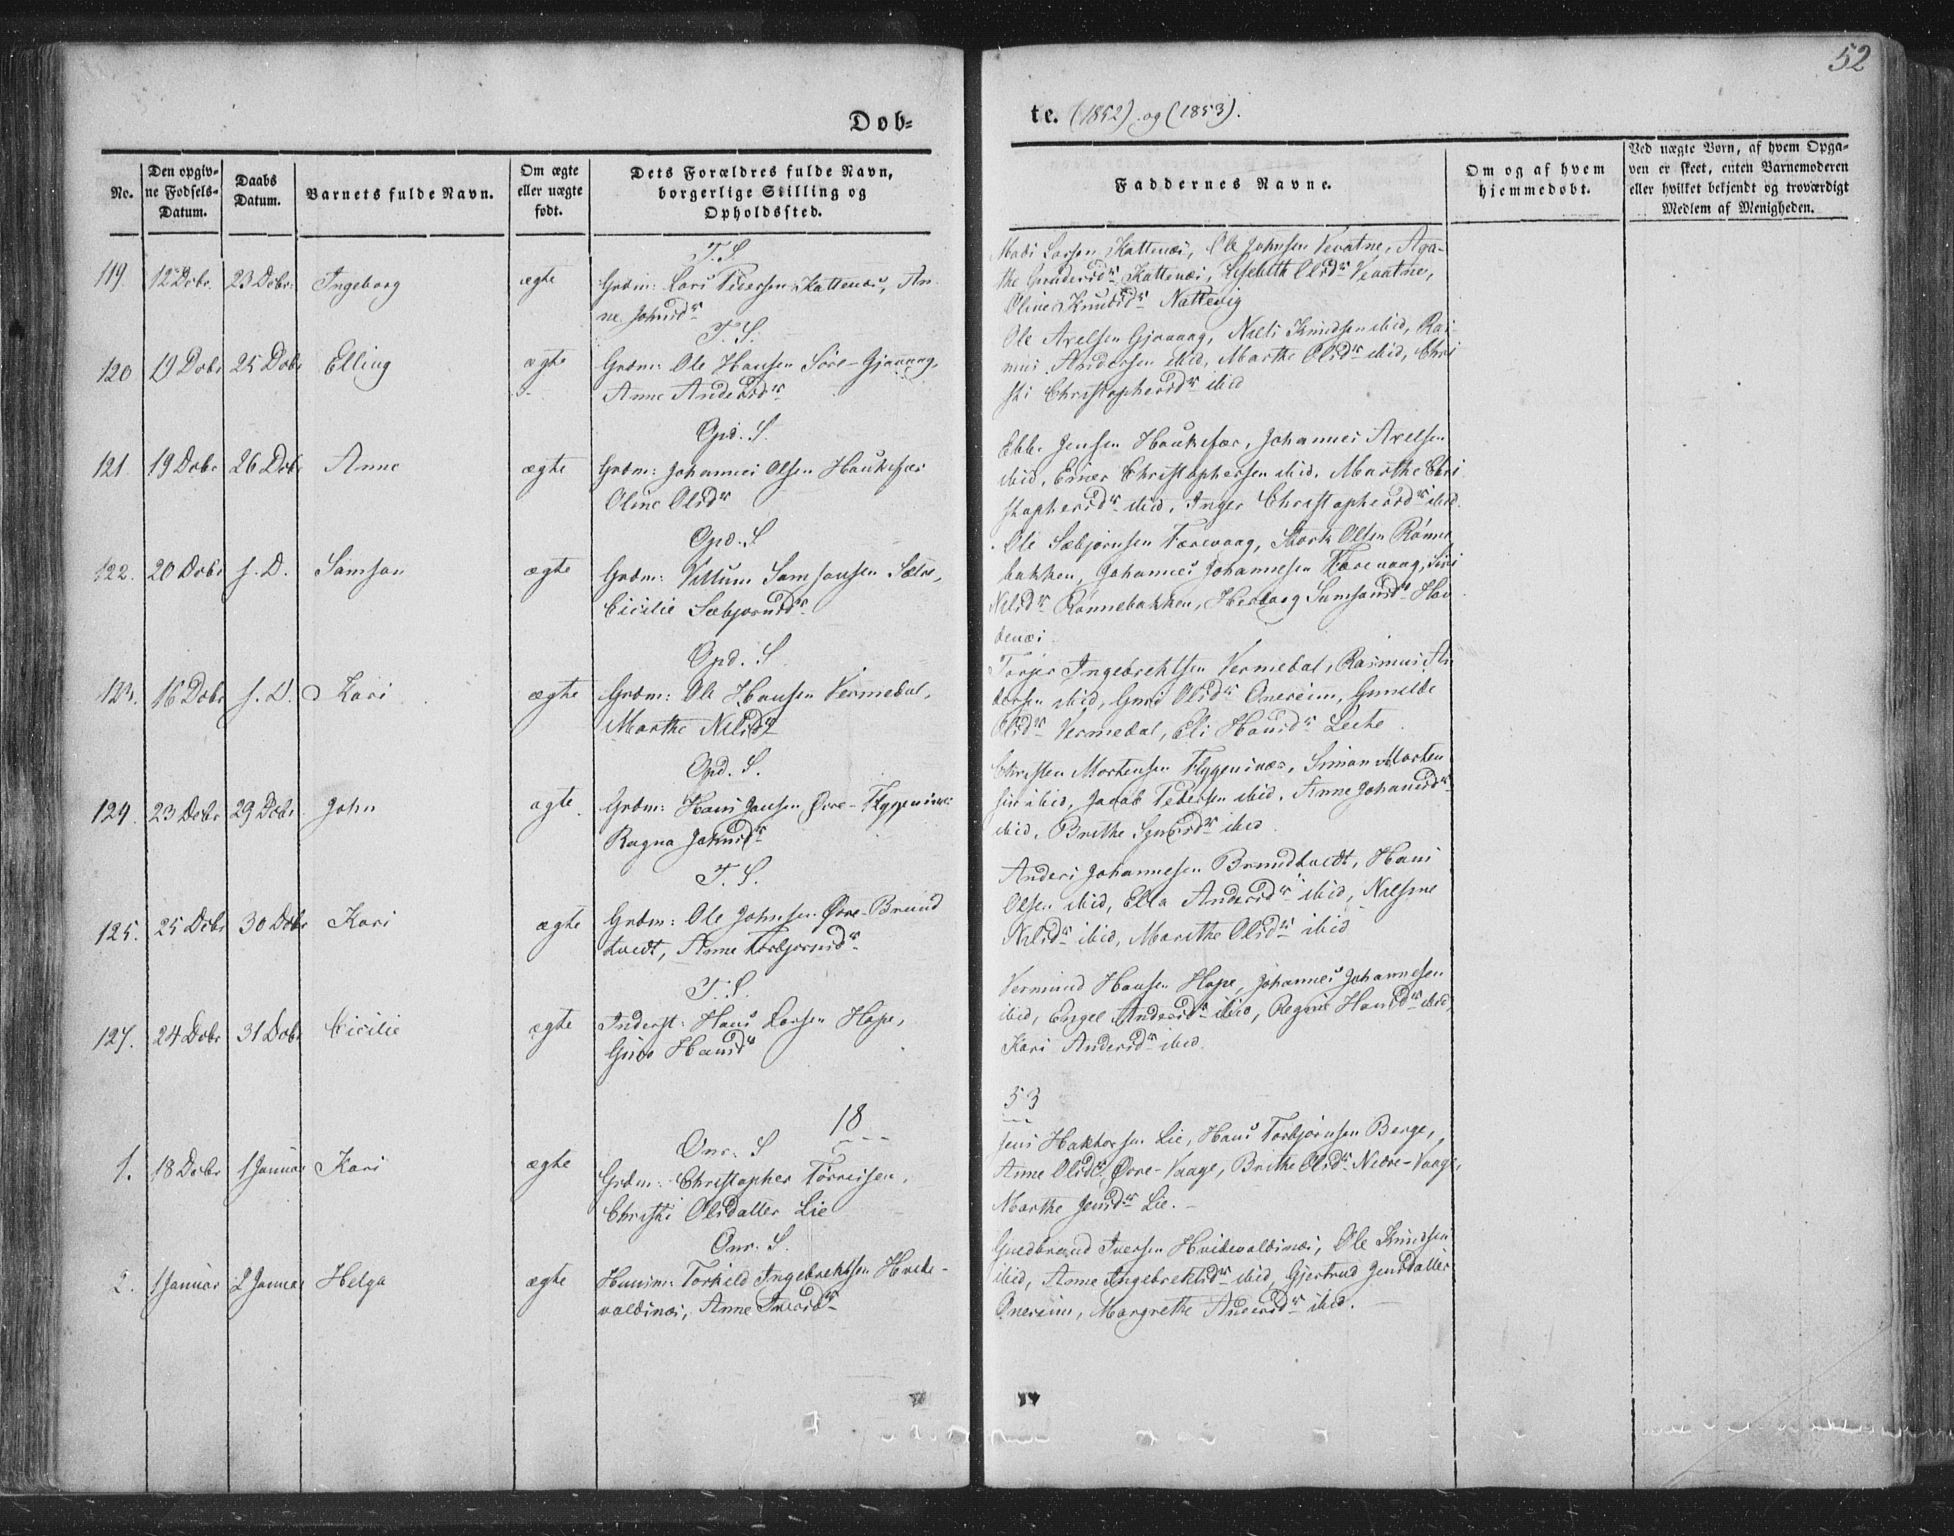 52
Døb-
te. (1852) og (1853).
No.
Den opgiv-
ne Fødsels-
Datum.
Daabs
Datum.
Barnets fulde Navn.
Om ægte
eller uægte
født.
Dets Forældres fulde Navn,
borgerlige Stilling og
Opholdssted.
Faddernes Navne.
Om og af hvem
hjemmedøbt.
Ved uægte Børn, af hvem Opga-
ven er skeet, enten Barnemoderen
eller hvilket bekjendt og troværdigt
Medlem af Menigheden.
T. S.
119. 12 Dcbr. 23 Dcbr. Ingeborg ægte Grdm: Lars Pedersen Kattenæs, An-
ne Johnsdr
Mads Larsen Kattenæs, Ole Johnsen Vevatne, Aga-
the Kattenæs, Lisebeth Olsdr Vevatne,
Oline Knudsdr Nattevig
T. S.
120 19 Dcbr 25 Dcbr Elling ægte Grdm: Ole Hansen Søre-Gjøvaag,
Anne Andersdr
Ole Axelsen Gjøvaag, Niels Knudsen ibid, Ras-
mus Andersen ibid, Marthe Olsdr ibid, Chri-
sti Christophersdr ibid
Opd. S.
121. 19 Dcbr 26 Dcbr Anne ægte Grdm: Johannes Olsen Haukefær
Oline Olsdr
Ebbe Jensen Haukefær, Johannes Axelsen
ibid, Einer Christophersen ibid, Marthe Chri-
stophersdr ibid, Inger Christophersdr ibid.
Opd. S
122. 20 Dcbr s. D. Samson ægte Grdm: Villum Samsonsen Sætre,
Cicilie Sæbjørnsdr
Ole Sæbjørnsen Færevaag, Stork Olsen Rønne-
bakken, Johannes Johannesen Færevaag, Siri
Nilsdr Rønnebakken, Herborg Samsonsdr Hav-
denæs
Opd. S
123. 16 Dcbr s. D. Kari ægte Grdm: Ole Hansen Vermedal,
Marthe Nilsdr
Torjer Ingebrektsen Vermedal, Rasmus An-
dersen ibid, Guri Olsdr Onereim, Gunilde
Olsdr Vermedal, Eli Hansdr Leite.
Opd. S.
124. 23 Dcbr 29 Dcbr John ægte. Grdm: Hans Jansen Øvre-Flygensnæs
Ragna Johnsdr
Christen Mortensen Flygensnæs, Simon Morten-
sen ibid, Jacob Pedersen ibid, Anne Johansdr
ibid, Brithe ibid.
T. S.
125. 25 Dcbr 30 Dcbr Kari ægte Grdm: Ole Johnsen Øvre-Brund-
tvedt, Anne Torbjørnsdr
Anders Johannesen Brundtvedt, Hans
Olsen ibid, Ella Andersdr ibid, Nilsine
Nilsdr ibid, Marithe Olsdr ibid
T. S.
127. 24 Dcbr 31 Dcbr Cicilie ægte Inderst: Hans Larsen Hope,
Guro Hansdr
Vermund Hansen Hope, Johannes Johannesen
ibid, Engel Andersdr ibid, Regine Hansdr ibid,
Kari Andersdr ibid.
18
53
Onr. S
1. 18 Dcbr 1 Januar Kari ægte Grdm: Christopher Torreisen,
Christi Olsdatter Lie
Jens Haktorsen Lie, Hans Torbjørnsen Berge,
Anne Olsdr Øvre-Vaage, Brithe Olsdr Nedre-Vaage,
Marthe Jensdr Lie.
Onr. S.
2. 1 Januar 2 Januar Helga ægte Husm: Torkild Ingebrektsen Hvide-
valdsnæs, Anne Iversdr
Guldbrand Iversen Hvidevaldsnæs, Ole Knudsen
ibid, Anne Ingebrektsdr ibid, Gjertrud Jensdatter
Onereim, Margrethe Andersdr ibid.